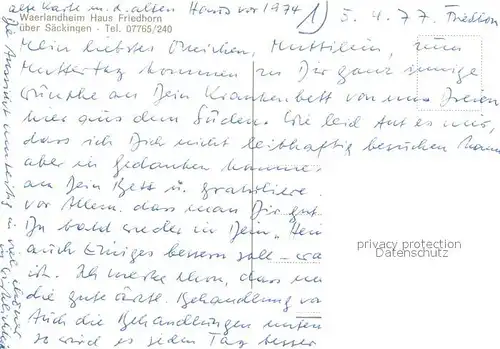 alte Karte m. d. alten Haus vor 1974 1) 5.4.77. Friedlon
Waerlandheim Haus Friedhorn
über Säckingen - Tel. 07765/240
Mein liebstes Omichen, Muttilein, zum
Muttertag kommen zu Dir ganz innige
Wünsche an Dein Krankenbett von uns Dreien
hier aus dem Süden. Wie leid tut es mir,
dass ich Dich nicht leibhaftig besuchen kann
aber in Gedanken komme
an Dein Bett u. gratuliere
vor Allem, dass man Dir gut
Du bald wieder in Dein "Heim
auch Einiges bessern soll - wa
ist. Ich merke schon, dass
die gute ärztl. Behandlung
Auch die Behandlungen
so wird es jeden Tag besser
privacy protection
Datenschutz
Die Aussicht